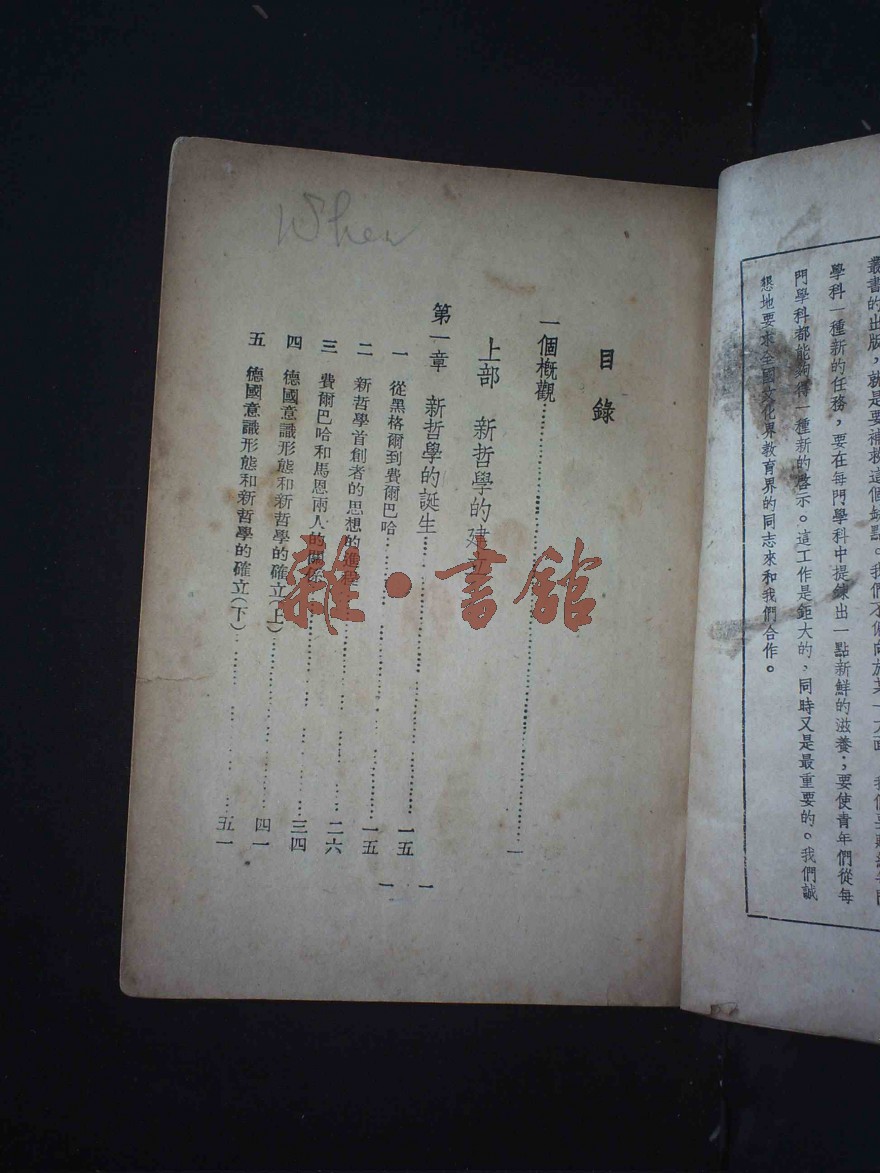 叢書的出版，就是要補救這個缺點。我們不偏向於某一方面，我們要
學科一種新的任務，要在每門學科中提鍊出一點新鮮的滋養；要使青年們從每
門學科都能夠得一種新的啓示。這工作是鉅大的，同時又是最重要的。我們誠
懇地要求全國文化界教育界的同志來和我們合作。
目錄
一個概觀……一
上部 新哲學的建立
第一章 新哲學的誕生……一五
一 從黑格爾到費爾巴哈……一五
二 新哲學首創者的思想的進程……二六
三 費爾巴哈和馬恩兩人的關係……三四
四 德國意識形態和新哲學的確立（上）……四一
五 德國意識形態和新哲學的確立（下）……五一
一
一
When
雜·書館